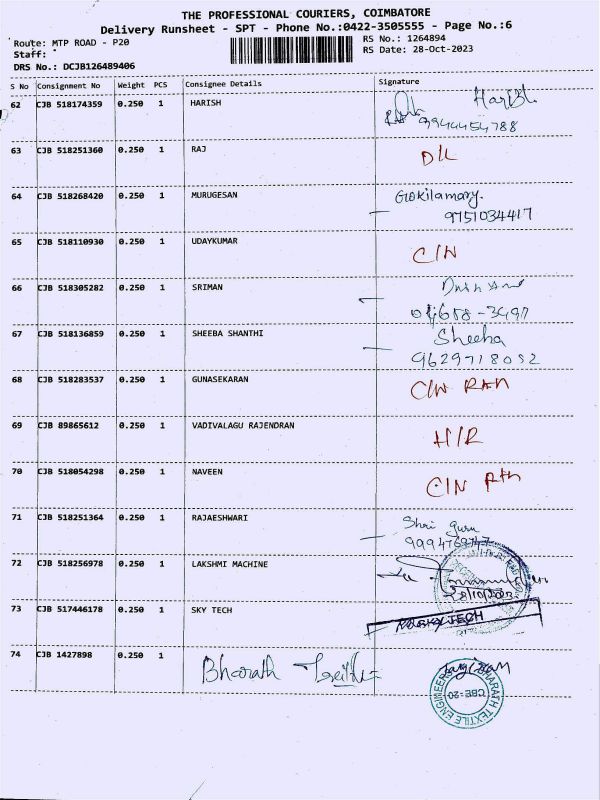 THE PROFESSIONAL COURIERS, COIMBATORE
Delivery Runsheet - SPT - Phone No.:0422-3505555 - Page No.:6
Route: MTP ROAD - P20
RS No.: 1264894
Staff:
RS Date: 28-Oct-2023
DRS No.: DCJB126489406
S No Consignment No Weight PCS Consignee Details Signature
62 CJB 518174359 0.250 1 HARISH Harish
9944454788
63 CJB 518251360 0.250 1 RAJ D/L
64 CJB 518268420 0.250 1 MURUGESAN Gokilamary.
9751034417
65 CJB 518110930 0.250 1 UDAYKUMAR C/N
66 CJB 518305282 0.250 1 SRIMAN
67 CJB 518136859 0.250 1 SHEEBA SHANTHI Sheeba
9629718032
68 CJB 518283537 0.250 1 GUNASEKARAN C/N
69 CJB 89865612 0.250 1 VADIVALAGU RAJENDRAN H/R
70 CJB 518054298 0.250 1 NAVEEN C/N
71 CJB 518251364 0.250 1 RAJAESHWARI Shri guru
72 CJB 518256978 0.250 1 LAKSHMI MACHINE
28/10/2023
73 CJB 517446178 0.250 1 SKY TECH SKY TECH
74 CJB 1427898 0.250 1 Bharath
BHARATH TEXTILE ENGINEERS
CBE-20